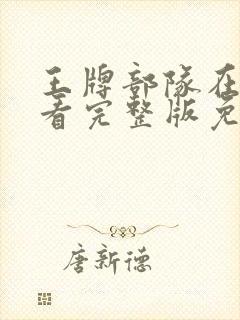 王牌部隊在
看完整版免
唐新德